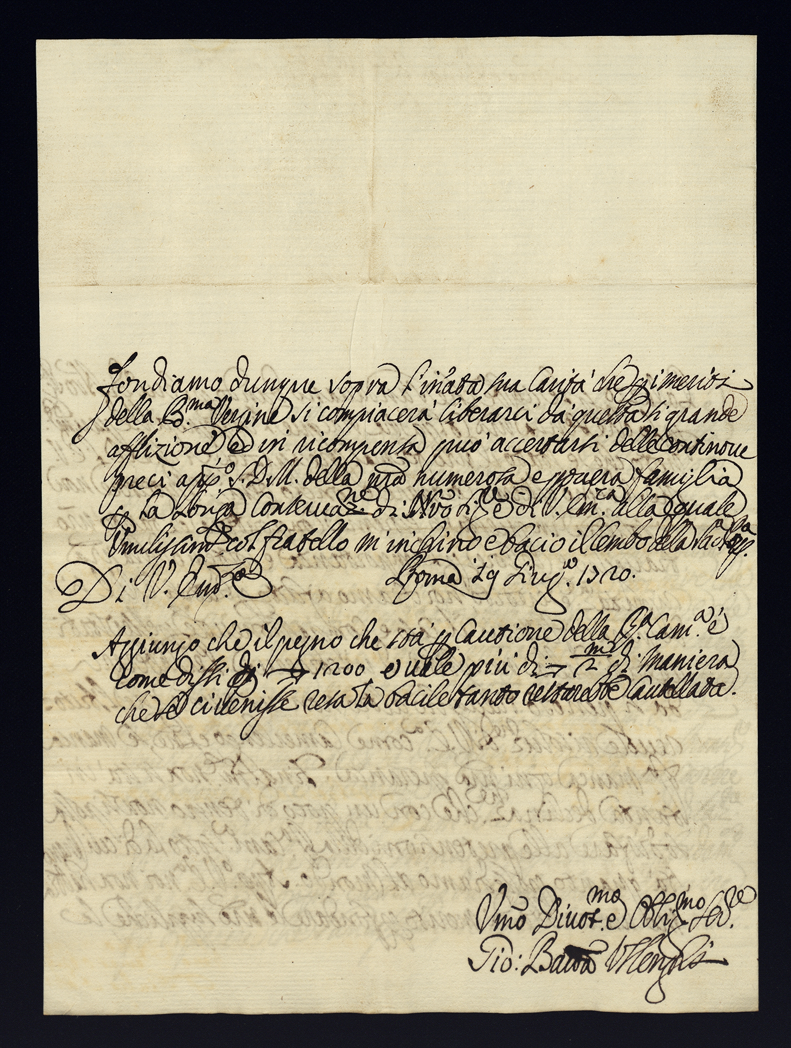 fondiamo dunque sopra l'inata sua Carità che p i meriti
della B.ma Vergine si compiacerà liberarci da questa sì grande
afflizione ed in ricompensa può accertarsi delle continoue
preci app.o S. D. M. della nrã numerosa e povera famiglia
p la longa conservaz.e di N.rõ Sig.re e di V. Em.za alla quale
Umiliss.am.te col fratello m'inchino e bacio il lembo della
Di V. Em.za
Roma 19 Giug.o 1720.
Aggiungo che il pegno che stà p Cautione della R.a Cam.a é
come dissi di 1200 e vale più di 2 m di maniera
che se ci venisse resa la bacile tanto restarebbe Cautelata.
Umõ Divot.mo e Oblig.mo Ser.re
Gio: Batta